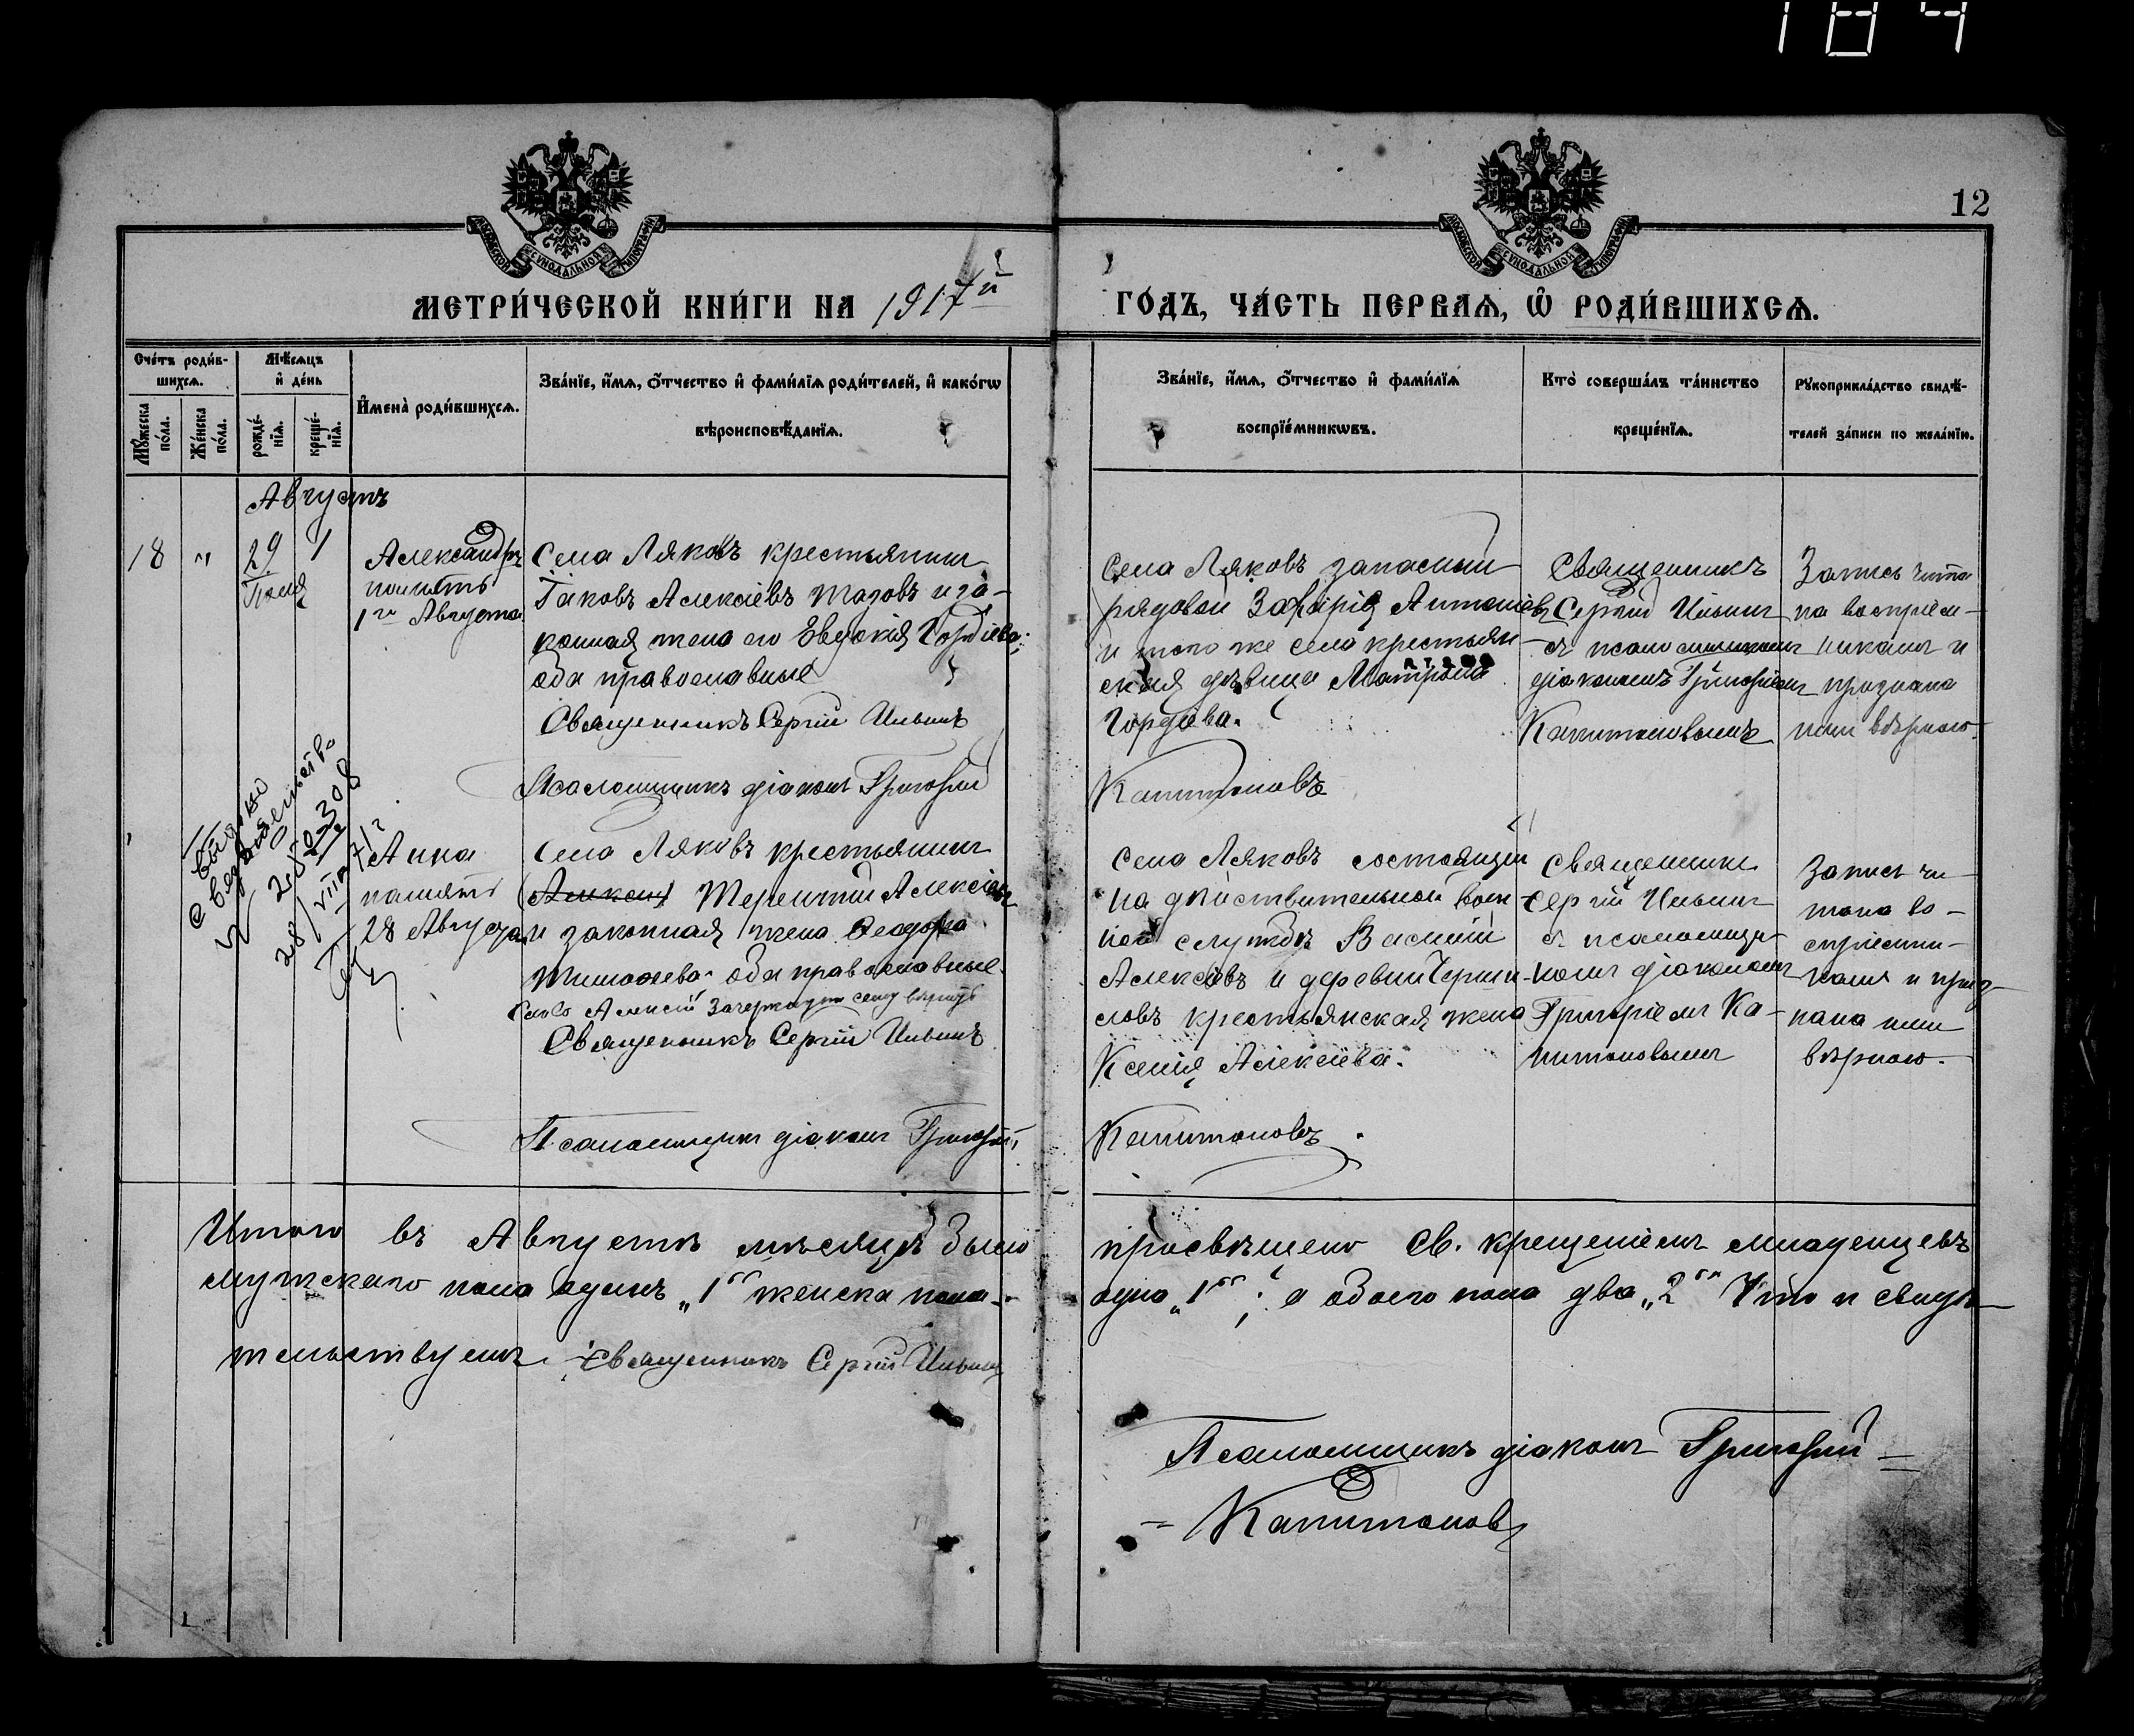 184
12
МЕТРИ́ЧЕСКОЙ КНИ́ГИ НА 1917й
ГО́ДЪ, ЧА́СТЬ ПЕРВАѦ, Ѡ РОДИ́ВШИХСѦ.
Сче́тъ роди́вшихсѧ.
Мꙋ́жеска по́ла.
Же́нска по́ла.
Мѣ́сѧцъ и де́нь
рожде́нїѧ.
креще́нїѧ.
И҆мена̀ роди́вшихсѧ.
Зва́нїе, и҆́мѧ, ѻ҆́тчество и҆ фами́лїѧ роди́телей, и҆ како́гѡ
вѣроисповѣ́данїѧ.
Зва́нїе, и҆́мѧ, ѻ҆́тчество и҆ фами́лїѧ
воспрїе́мникѡвъ.
Кто̀ соверша́лъ та́инство
креще́нїѧ.
Рꙋкоприкла́дство свидѣ́-
телей за́писи по жела́нїю.
Августъ
18 " 29 1
Іюля
Александръ
память
1го Августа
Села Ляховъ крестьянинъ
Іаковъ Алексіевъ и за-
конная жена его Евдокія Гордіева;
оба православные
Священникъ Сергій Ильинъ
Псаломщикъ діаконъ Григорій
Села Ляховъ запасный
рядовой Антоніевъ
и того же села крестьян-
ская дѣвица Матрона
Гордіева.
Капитоновъ
Священникъ
Сергій Ильинъ
съ псаломщикомъ
діакономъ Григоріемъ
Капитоновымъ
Запись чита
на воспріем-
никамъ и
признана
ими вѣрною.
Выдано
свидетельство
Анна
память
28 Августа
Села Ляховъ крестьянинъ
(Алексій) Терентій Алексіевъ
и законная жена Ѳеодора
Тимоѳеева оба православные.
Слово Алексій зачеркнутое сему вѣрить
Священникъ Сергій Ильинъ
Псаломщикъ діаконъ Григорій
Села Ляховъ состоящій
на дѣйствительной воен-
ной службѣ Василій
Алексѣевъ и деревни
крестьянская жена
Ксенія Алексіева.
Капитоновъ
Священникъ
Сергій Ильинъ
съ псаломщи-
комъ діакономъ
Григоріемъ Ка-
питоновымъ
Запись чи-
тана во-
спріемни-
камъ и приз-
нана ими
вѣрною.
Итого въ Августѣ мѣсяцѣ было просвѣщено Св. крещеніемъ младенцевъ
мужскаго пола одинъ „1" женска пола- одно „1"; а обоего пола два „2" Что и свидѣ-
тельствуемъ. Священникъ Сергій Ильинъ
Псаломщикъ діаконъ Григорій
Капитоновъ